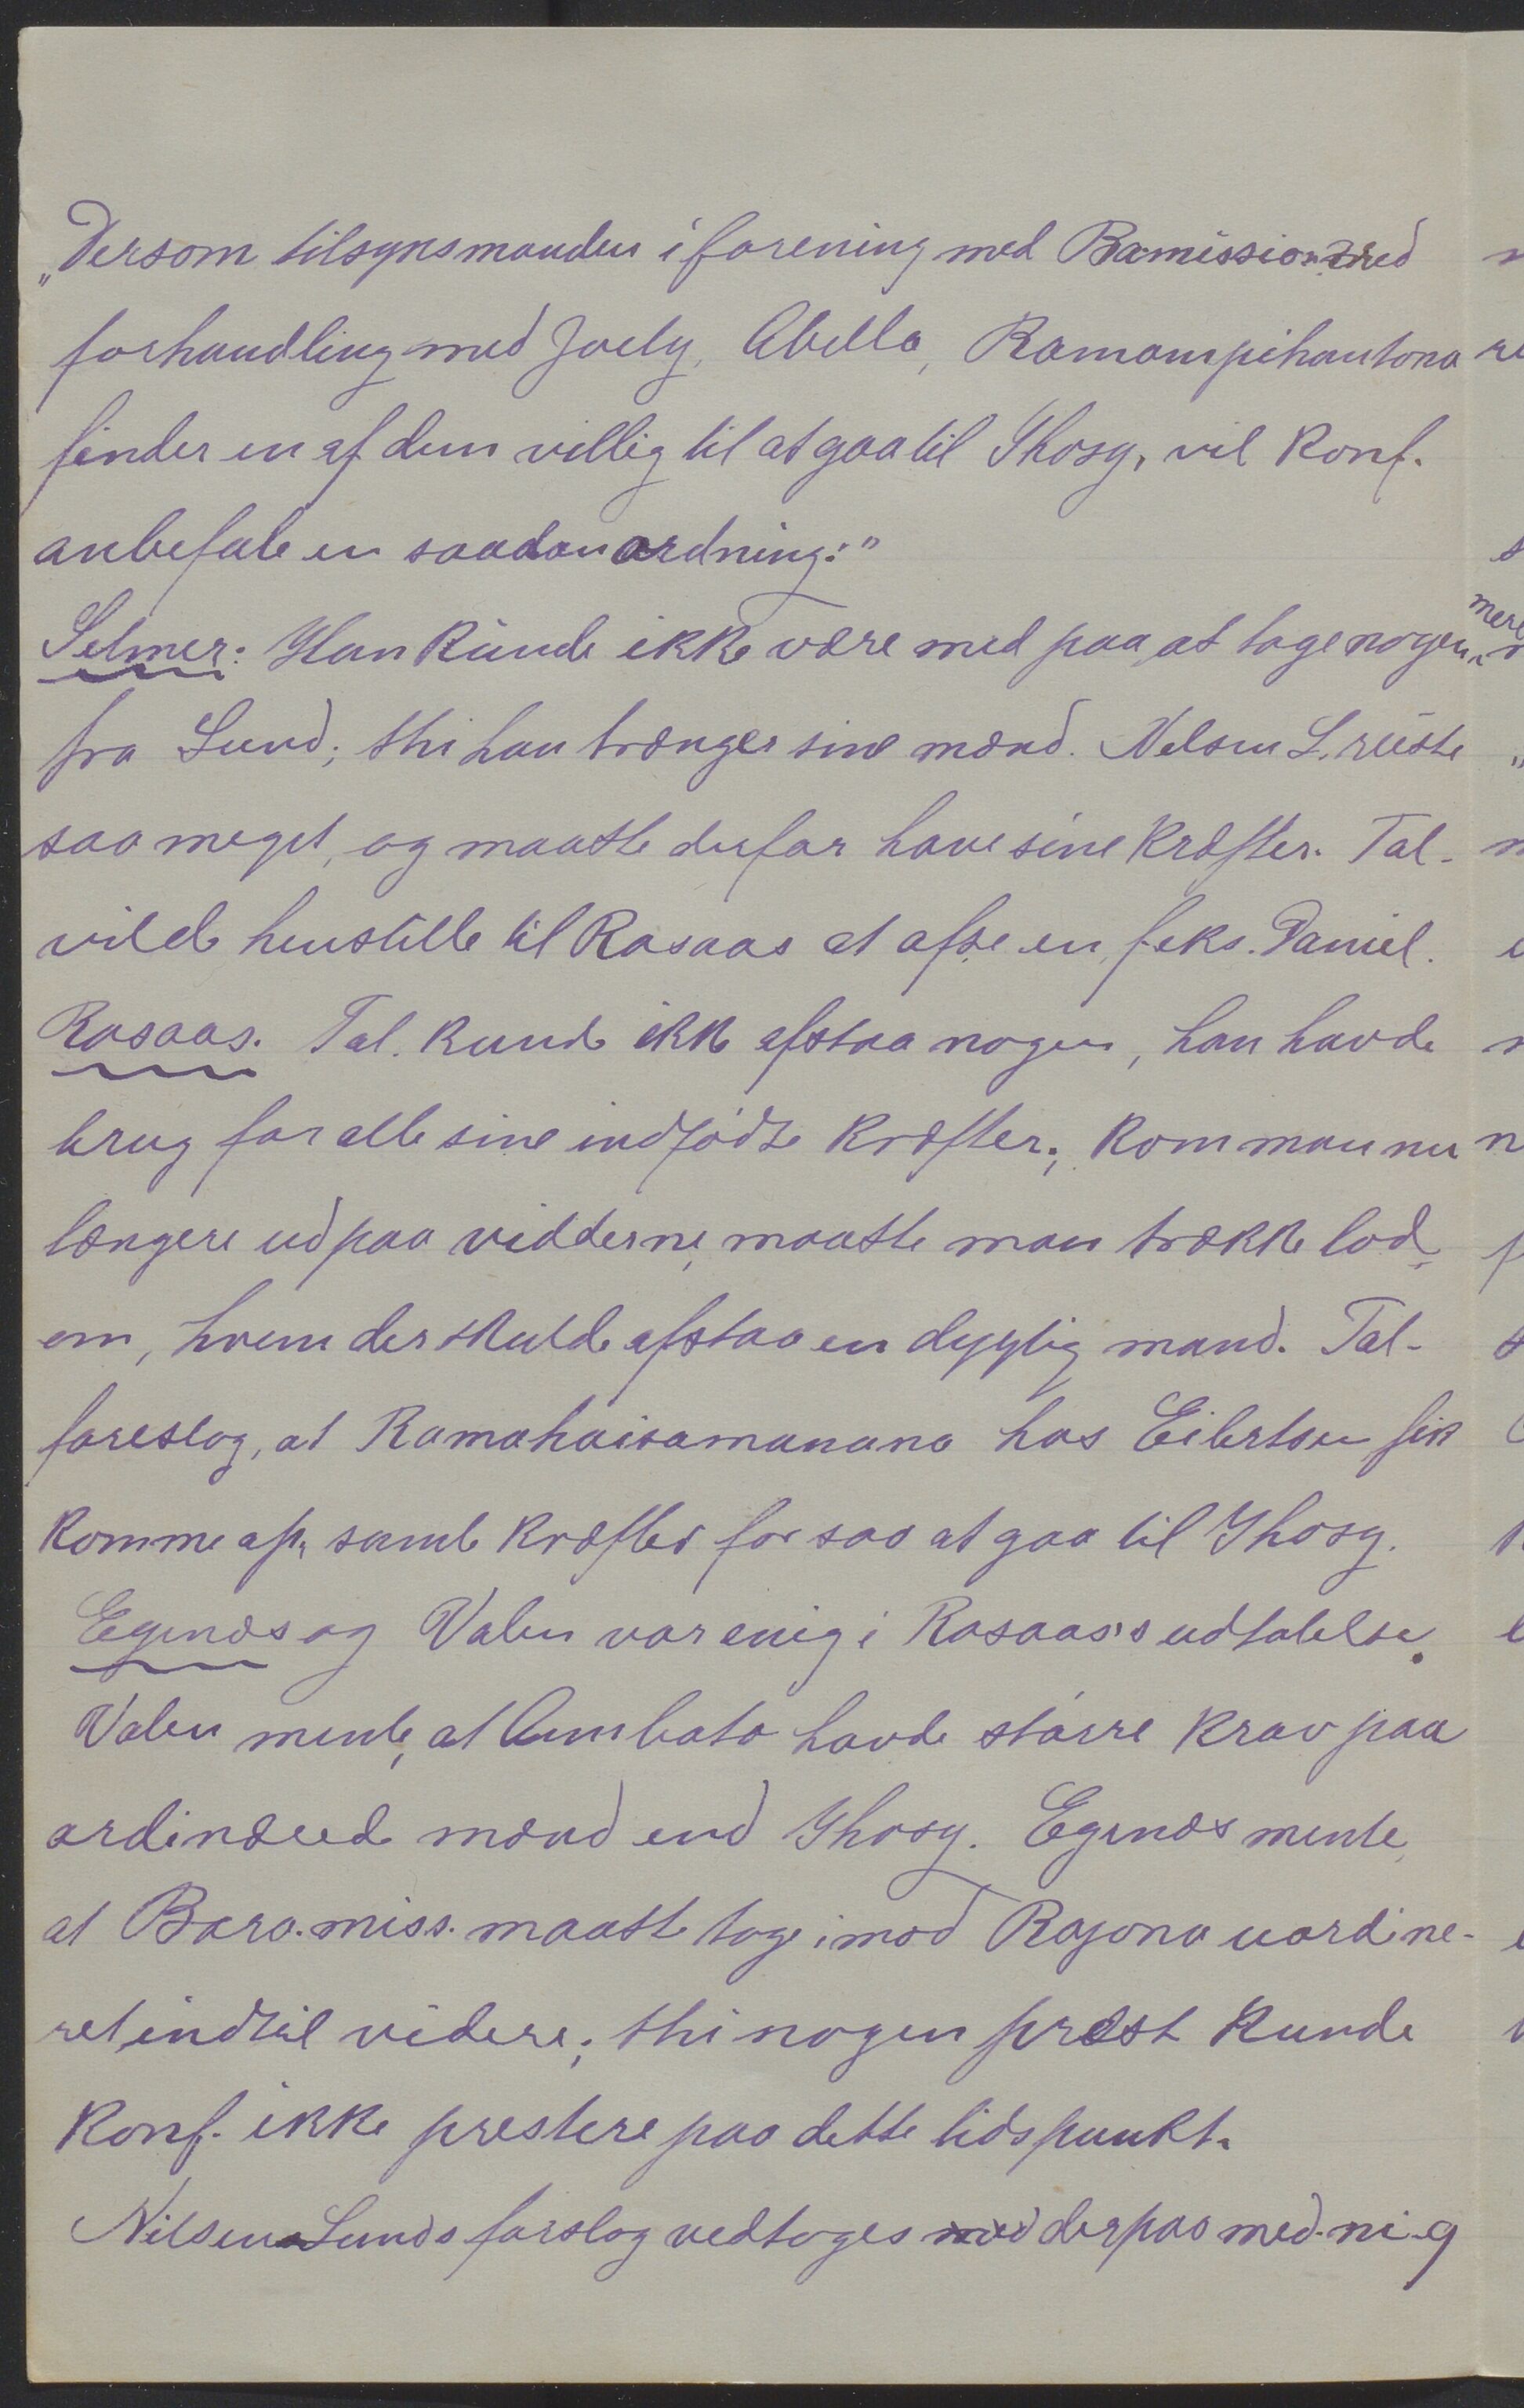 „Dersom tilsynsmanden i forening med Bamission ved
forhandling med Joely, Abella, Ramampihantona
finder en af dem villig til at gaa til Ihosy, vil Konf.
anbefale en saadan ordning:"
Selmer: Han kunde ikke være med paa, at tage nogen mere
fra Lund; thi han trænger sine mænd. Nelsen L. reiste
saa meget, og maatte derfor have sine kræfter. Tal.
vilde henstille til Rasaas at afse en, f.eks. Daniel.
Rasaas. Tal. kunde ikke afstaa nogen, han havde
brug for alle sine indfødte kræfter; kom man nu
længere ud paa vidderne, maatte man trække lod
om, hvem der skulde afstaa en dygtig mand. Tal.
foreslog, at Ramahaisamanana hos Eilertsen fik
komme op, samle kræfter for saa at gaa til Ihosy.
Egenæs og Valen var enig i Rasaas's udtalelse.
Valen mente, at Ambato havde større krav paa
ordinerede mænd end Ihosy. Egenæs mente,
at Bara.miss. maatte tage imod Rajona uordine-
ret indtil videre; thi nogen præst kunde
Konf. ikke prestere paa dette tidspunkt.
Nilsen-Lunds forslag vedtoges derpaa med ni-9